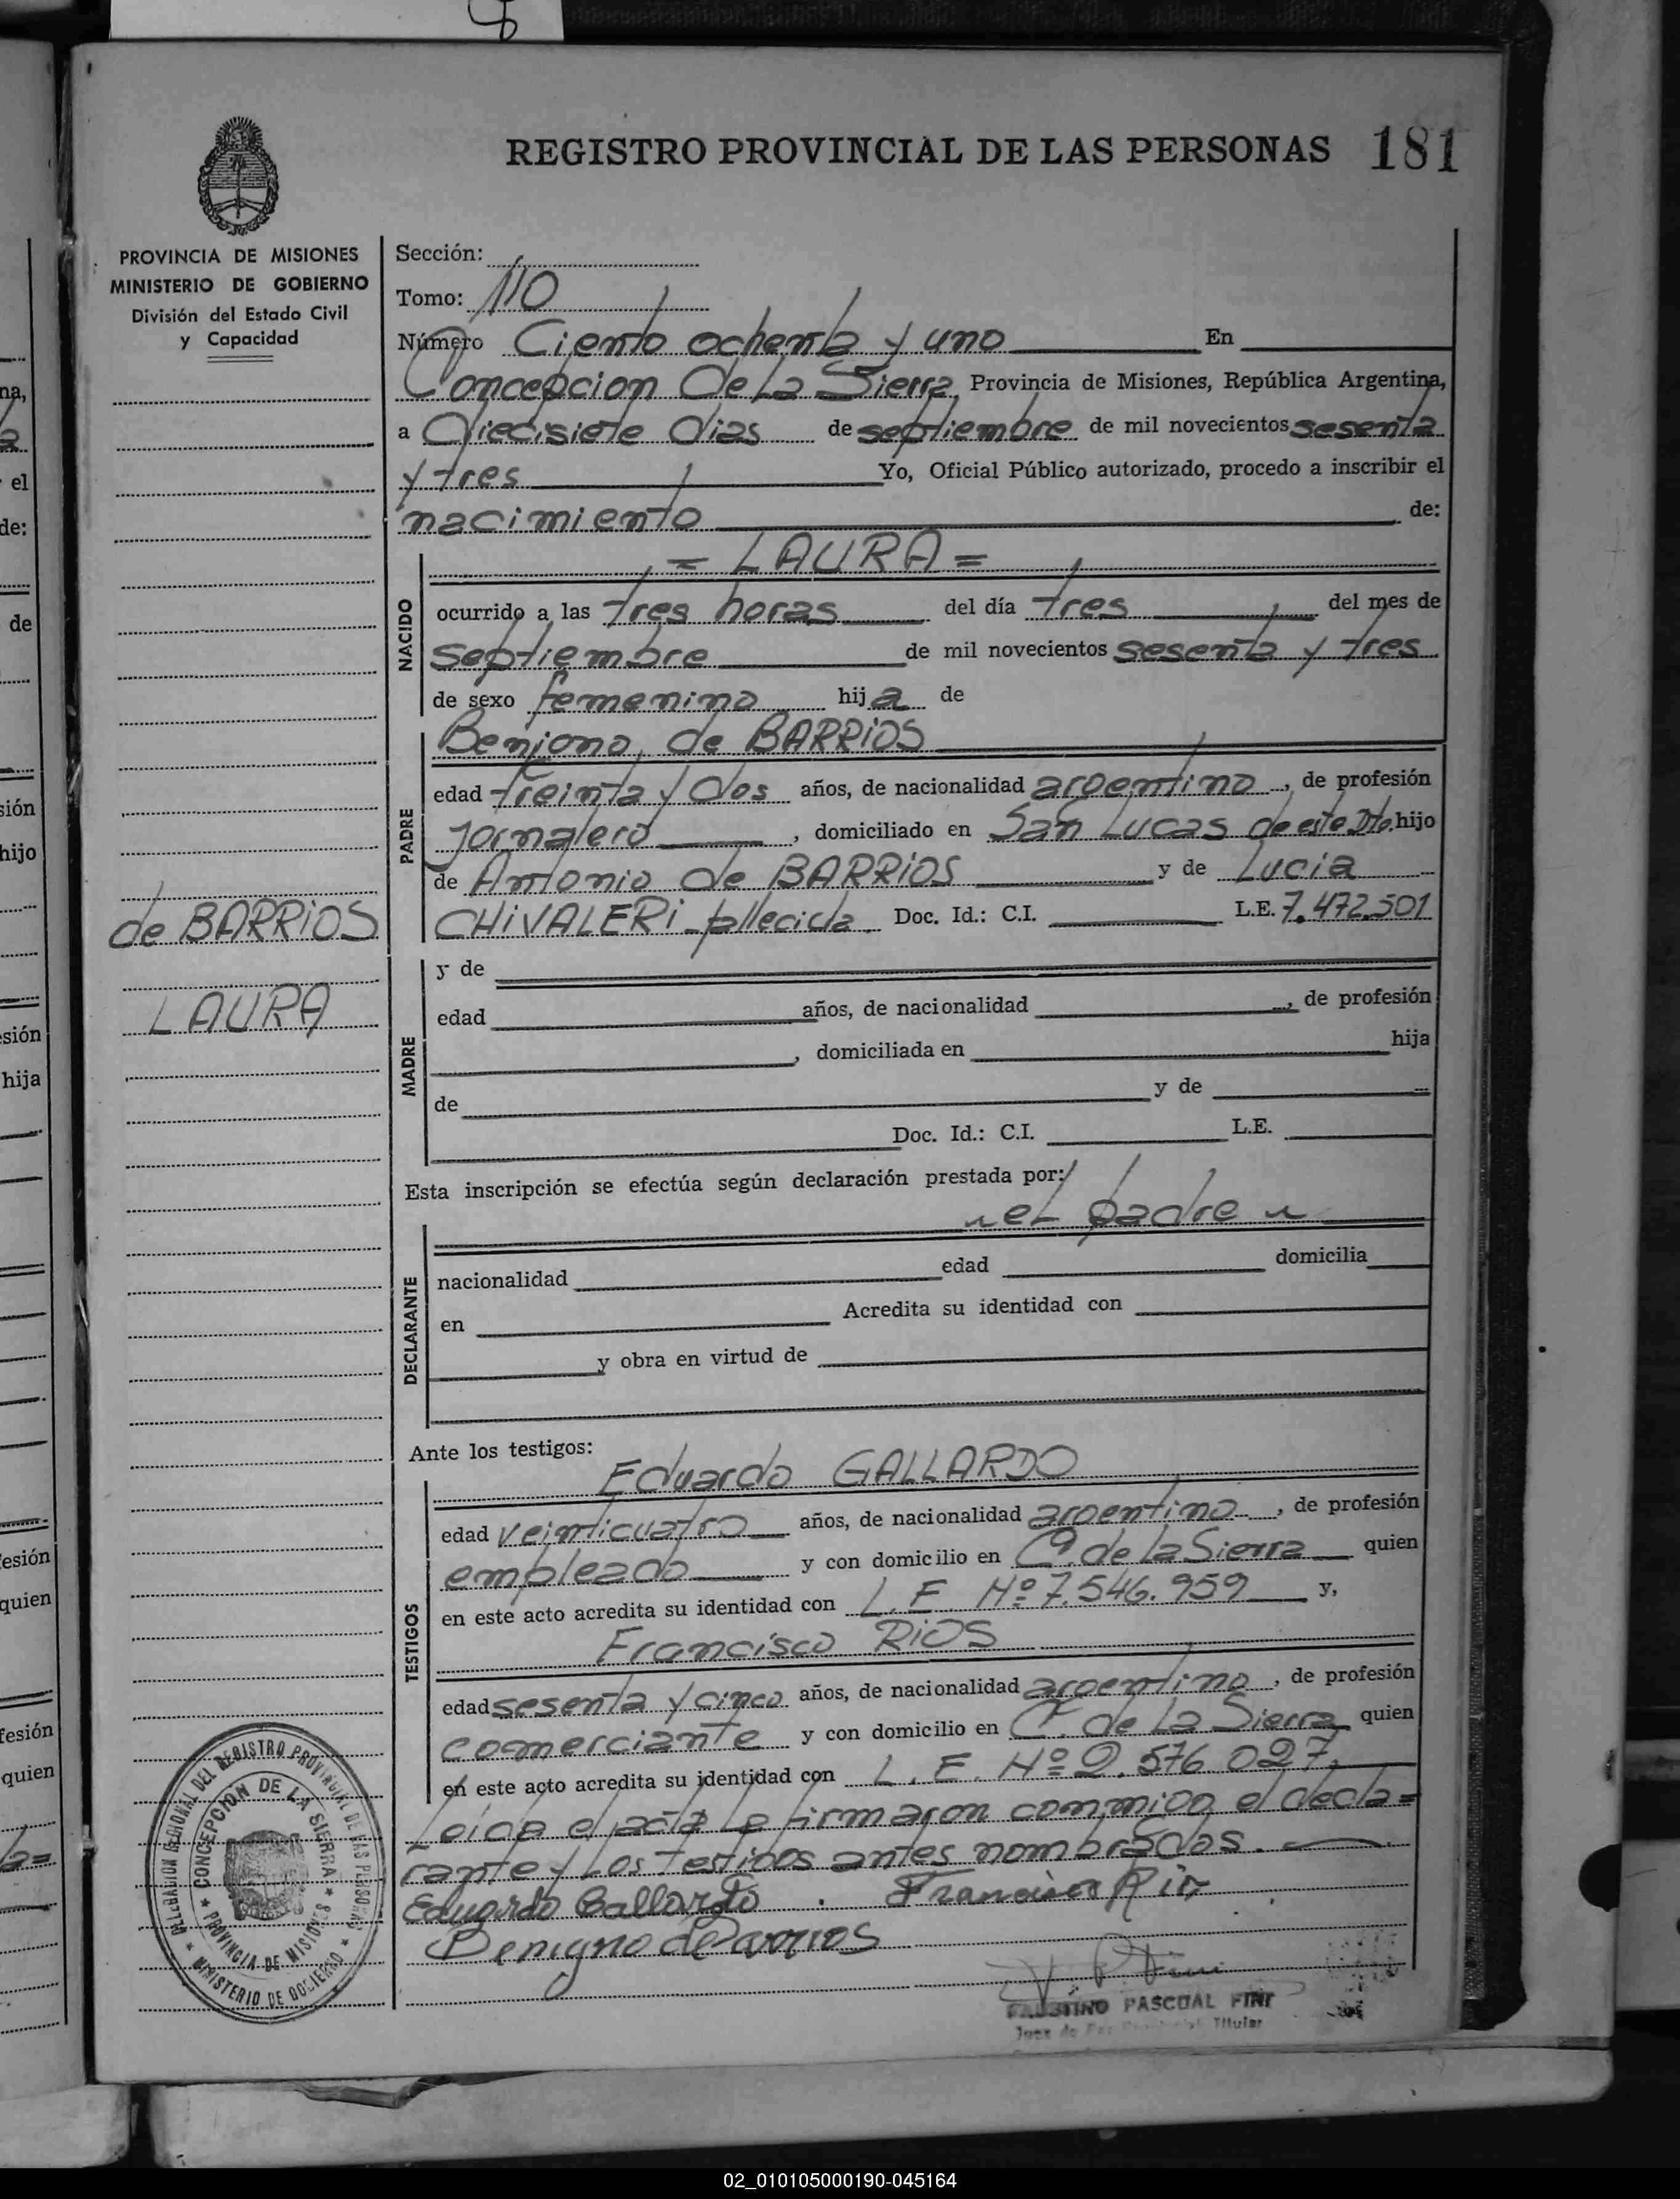 REGISTRO PROVINCIAL DE LAS PERSONAS 181
PROVINCIA DE MISIONES
MINISTERIO DE GOBIERNO
División del Estado Civil
y Capacidad
de BARRiOS
LAURA
Sección:
Tomo: 110
Número Ciento ochenta y uno En
Concepcion De La Sierra, Provincia de Misiones, República Argentina,
a Diecisiete dias de septiembre de mil novecientos sesenta
y tres Yo, Oficial Público autorizado, procedo a inscribir el
nacimiento de:
= LAURA =
NACIDO
ocurrido a las tres horas del día tres del mes de
septiembre de mil novecientos sesenta y tres
de sexo femenino hija de
PADRE
de BARRiOS
edad treinta y dos años, de nacionalidad argentino, de profesión
jornalero, domiciliado en San Lucas de este Dto. hijo
de Antonio de BARRiOS y de Lucia
CHiVALERi fallecida. Doc. Id.: C.I. L.E. 7.472.501
MADRE
y de
edad años, de nacionalidad , de profesión
, domiciliada en hija
de y de
Doc. Id.: C.I. L.E.
Esta inscripción se efectúa según declaración prestada por:
el padre
DECLARANTE
nacionalidad edad domicilia
en Acredita su identidad con
y obra en virtud de
Ante los testigos:
Eduardo GALLARDO
TESTIGOS
edad veinticuatro años, de nacionalidad argentino, de profesión
empleado y con domicilio en C. de la Sierra quien
en este acto acredita su identidad con L.E Nº 7.546.959 y,
Francisco RiOS
edad sesenta y cinco años, de nacionalidad argentino, de profesión
comerciante y con domicilio en C. de La Sierra quien
en este acto acredita su identidad con L.E. Nº 2.576.027,
Leida el acta La firmaron conmigo el decla=
rante y Los testigos antes nombrados.
Eduardo Gallardo Francisco Rios
Benigno de Barrios
FAUSTINO PASCUAL FINI
Juez de Paz Titular
DELEGACION REGIONAL DEL REGISTRO PROVINCIAL DE LAS PERSONAS
MINISTERIO DE GOBIERNO
CONCEPCION DE LA SIERRA
PROVINCIA DE MISIONES
na,
el
de:
de
sión
hijo
sión
hija
esión
quien
fesión
quien
02_010105000190-045164